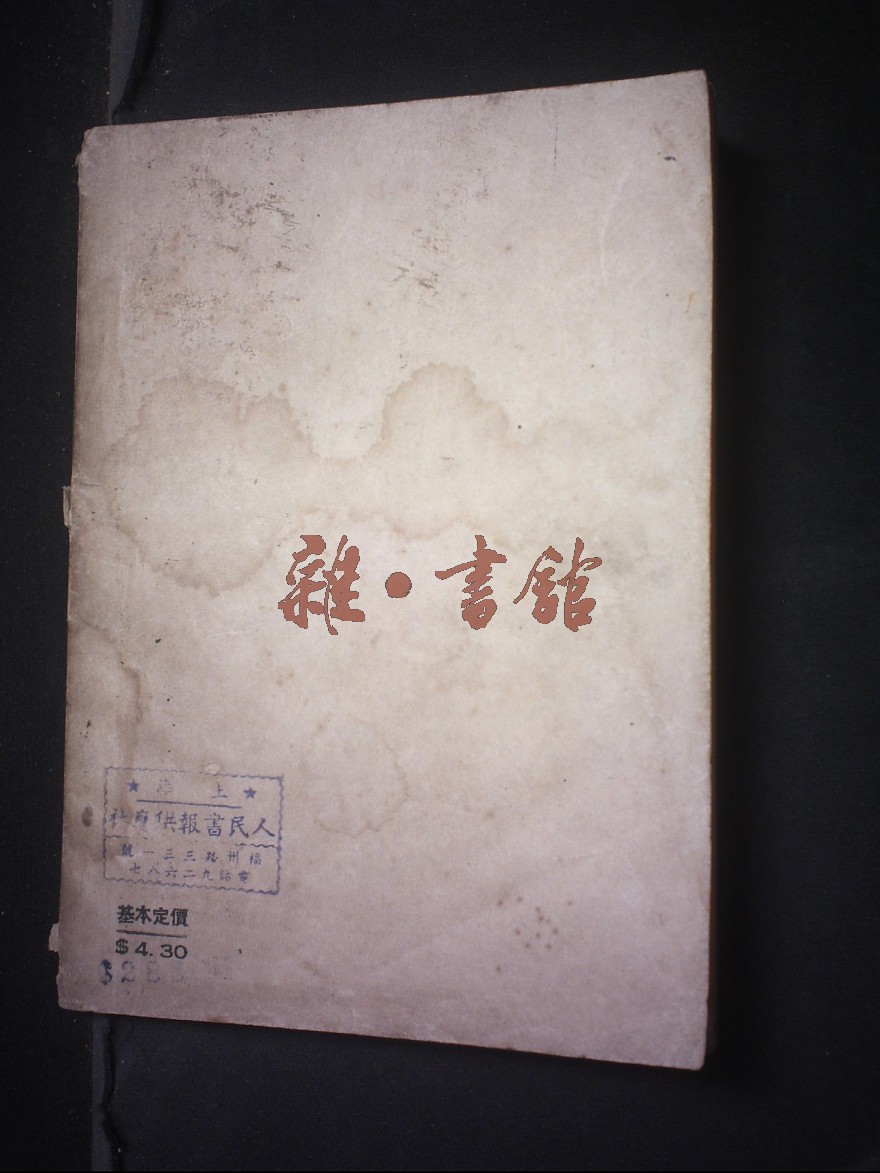 雜·書館
上海
人民書報供應社
福州路三三一號
電話九二六八七
基本定價
$4.30